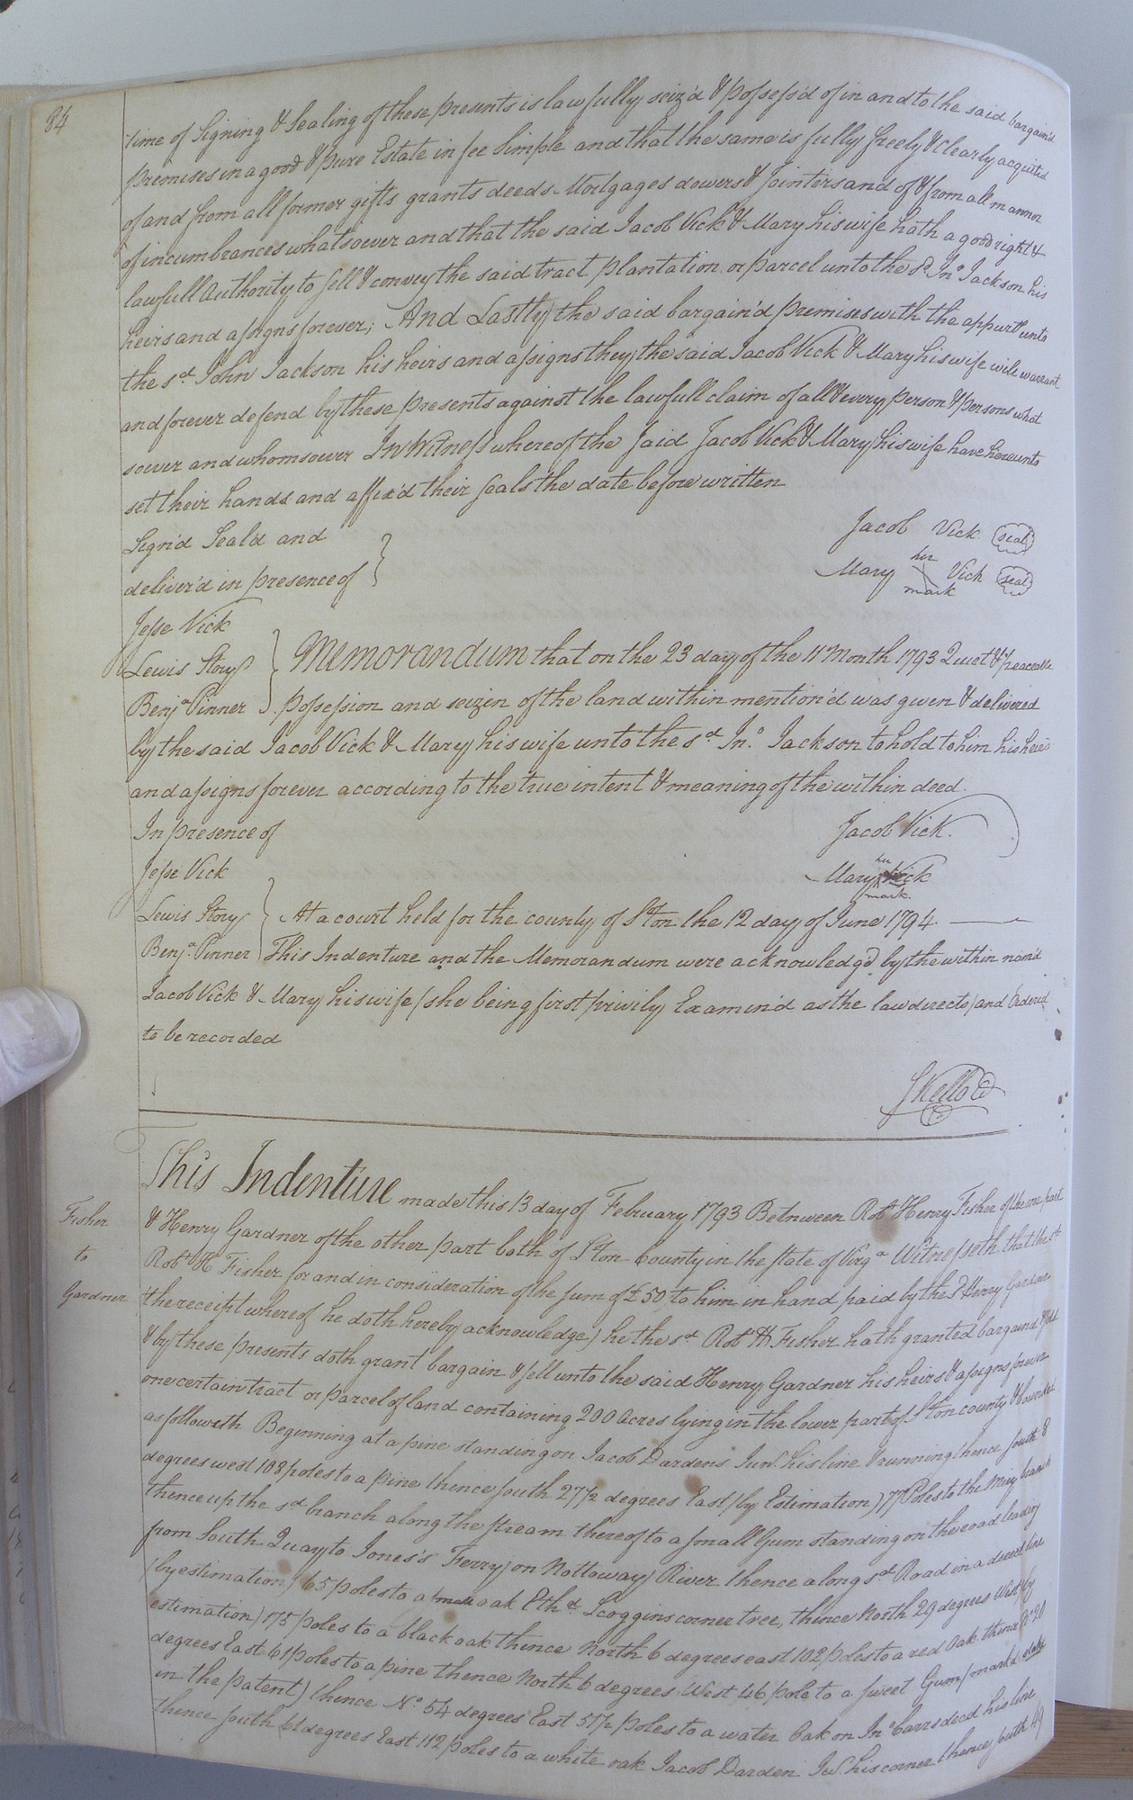 84
time of Signing & Sealing of these presents is lawfully seiz'd & possess'd of in and to the said bargain'd
premises in a good & pure Estate in fee Simple and that the same is fully freely & clearly acquitted
of and from all former gifts grants deeds Mortgages dowers & Jointers and of & from all manner
of incumbrances whatsoever and that the said Jacob Vick & Mary his wife hath a good right &
lawfull Authority to sell & convey the said tract plantation or parcel unto the sd. Jno. Jackson his
heirs and assigns forever; And Lastly the said bargain'd premises with the appurts unto
the sd. John Jackson his heirs and assigns they the said Jacob Vick & Mary his wife will warrant
and forever defend by these presents against the lawfull claim of all & every person & persons what
soever and whomsoever In Witness whereof the said Jacob Vick & Mary his wife have hereunto
set their hands and affix'd their seals the date before written
Sign'd Seal'd and
deliver'd in presence of
Jacob Vick seal
Mary her mark Vick seal
Jesse Vick
Lewis Story
Benja. Pinner
Memorandum that on the 23 day of the 11 Month 1793 Quiet & peaceable
possession and seizin of the land within mention'd was given & delivered
by the said Jacob Vick & Mary his wife unto the sd. Jno. Jackson to hold to him his heirs
and assigns forever according to the true intent & meaning of the within deed.
In presence of
Jacob Vick.
Jesse Vick
Mary her mark Vick
Lewis Story
Benja. Pinner
At a court held for the county of Ston the 12 day of June 1794
This Indenture and the Memorandum were acknowledg'd by the within nam'd
Jacob Vick & Mary his wife (she being first privily Examin'd as the law directs) and Ordered
to be recorded
SKello
Fisher
to
Gardner
This Indenture made this 13 day of February 1793 Between Robt. Henry Fisher of the one part
& Henry Gardner of the other part both of Ston County in the state of Virga. Witnesseth that the sd.
Robt. H Fisher for and in consideration of the sum of £50 to him in hand paid by the sd Henry Gardner
(the receipt whereof he doth hereby acknowledge) he the sd. Robt. H Fisher hath granted bargaind & sold
& by these presents doth grant bargain & sell unto the said Henry Gardner his heirs & assigns forever
one certain tract or parcel of land containing 200 Acres lying in the lower part of Ston county & bounded
as followeth Beginning at a pine standing on Jacob Darden's Junr. his line & running thence South 8
degrees west 108 poles to a pine thence South 27½ degrees East (by Estimation) 77 Poles to the Miry branch
thence up the sd. branch along the stream thereof to a small Gum standing on the road leading
from South Quay to Jones's Ferry on Nottoway River thence along sd. Road in a direct line
(by estimation) 65 poles to a oak Ethd. Scoggins corner tree, thence North 29 degrees West (by
estimation) 175 poles to a black oak thence North 6 degrees east 102 poles to a red Oak thence No. 20
degrees East 61 poles to a pine thence North 6 degrees West 46 pole to a sweet Gum (mark'd
in the patent) thence No. 54 degrees East 57½ poles to a water Oak on Jno. Carrs decd his line
thence south 61 degrees East 112 poles to a white oak Jacob Darden Junr. his corner thence south 49